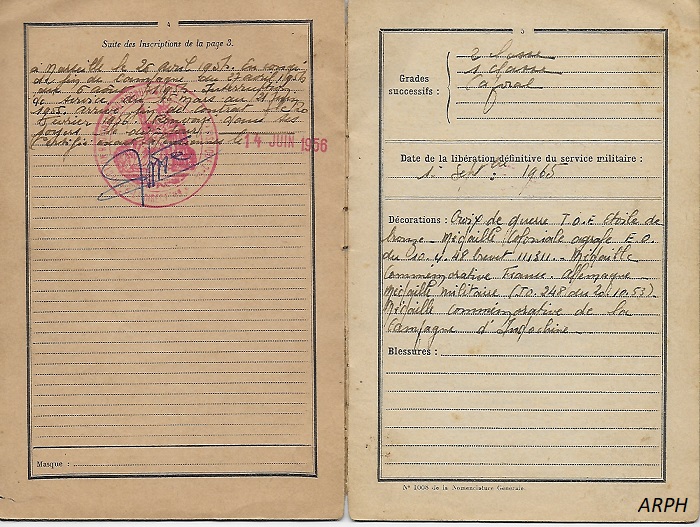 4
Suite des Inscriptions de la page 3.
à Marseille le 26 avril 1954. En congé
de fin de campagne du 27 avril 1954
au 6 août 1954. Interruption
de service du 15 mars au 21 juin
1955. arrivé fin de contrat le
février 1956. Renvoyé dans ses
foyers le dit jour.
Certifié le 14 JUIN 1956
Masque :
5
Grades
successifs :
2 classe
1 classe
Caporal
Date de la libération définitive du service militaire :
1 Sept 1965
Décorations : Croix de guerre T.O.E étoile de
bronze - Médaille Coloniale agrafe E.O.
du 10.4.48 brevet 111311 - Médaille
Commémorative France. Allemagne
Médaille militaire (J.O. 248 du 20.10.53).
Médaille commémorative de la
Campagne d'Indochine
Blessures :
N° 1008 de la Nomenclature Générale.
ARPH